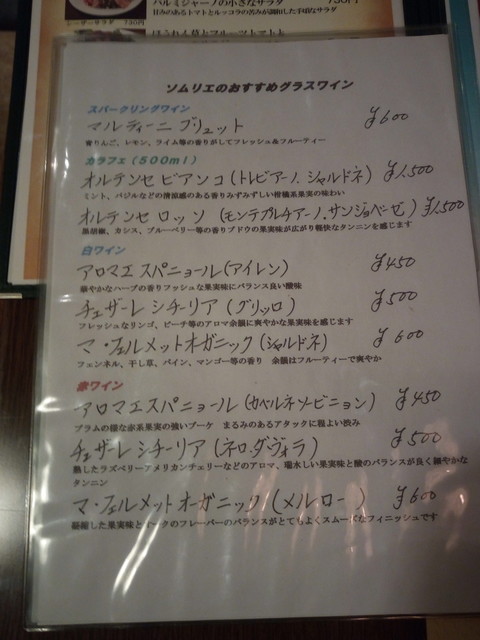 パルミジャーノの小さなサラダ 730円
甘みのあるトマトとルッコラの苦みが調和した手頃なサラダ
シーザーサラダ 730円
ほうれん草とフルーツトマト
ソムリエのおすすめグラスワイン
スパークリングワイン
マルティーニ ブリュット ¥600
青りんご、レモン、ライム等の香りがしてフレッシュ&フルーティー
カラフェ(500ml)
オルテンセ ビアンコ(トレビアーノ、シャルドネ) ¥1,500
ミント、バジルなどの清涼感のある香りみずみずしい柑橘系果実の味わい
オルテンセ ロッソ (モンテプルチアーノ、サンジョベーゼ) ¥1,500
黒胡椒、カシス、ブルーベリー等の香りブドウの果実味が広がり軽快なタンニンを感じます
白ワイン
アロマエスパニョール(アイレン) ¥450
華やかなハーブの香りフッシュな果実味にバランス良い酸味
チェザーレ シチーリア (グリッロ) ¥500
フレッシュなリンゴ、ピーチ等のアロマ余韻に爽やかな果実を感じます
マ・フェルメットオガニック(シャルドネ) ¥600
フェンネル、干し草、パイン、マンゴー等の香り 余韻はフルーティーで爽やか
赤ワイン
アロマエスパニョール(カベルネソービニョン) ¥450
プラムの様な赤系果実の強いブーケ まるみのあるアタックに程よい渋み
チェザーレ シチーリア (ネロ.ダヴォラ) ¥500
熟したラズベリーアメリカンチェリーなどのアロマ、瑞水しい果実味と酸のバランスが良く細やかな
タンニン
マ・フェルメットオーガニック (メルロー) ¥600
凝縮した果実味とオークのフレーバーのバランスがとてもよくスムーズなフィニッシュです